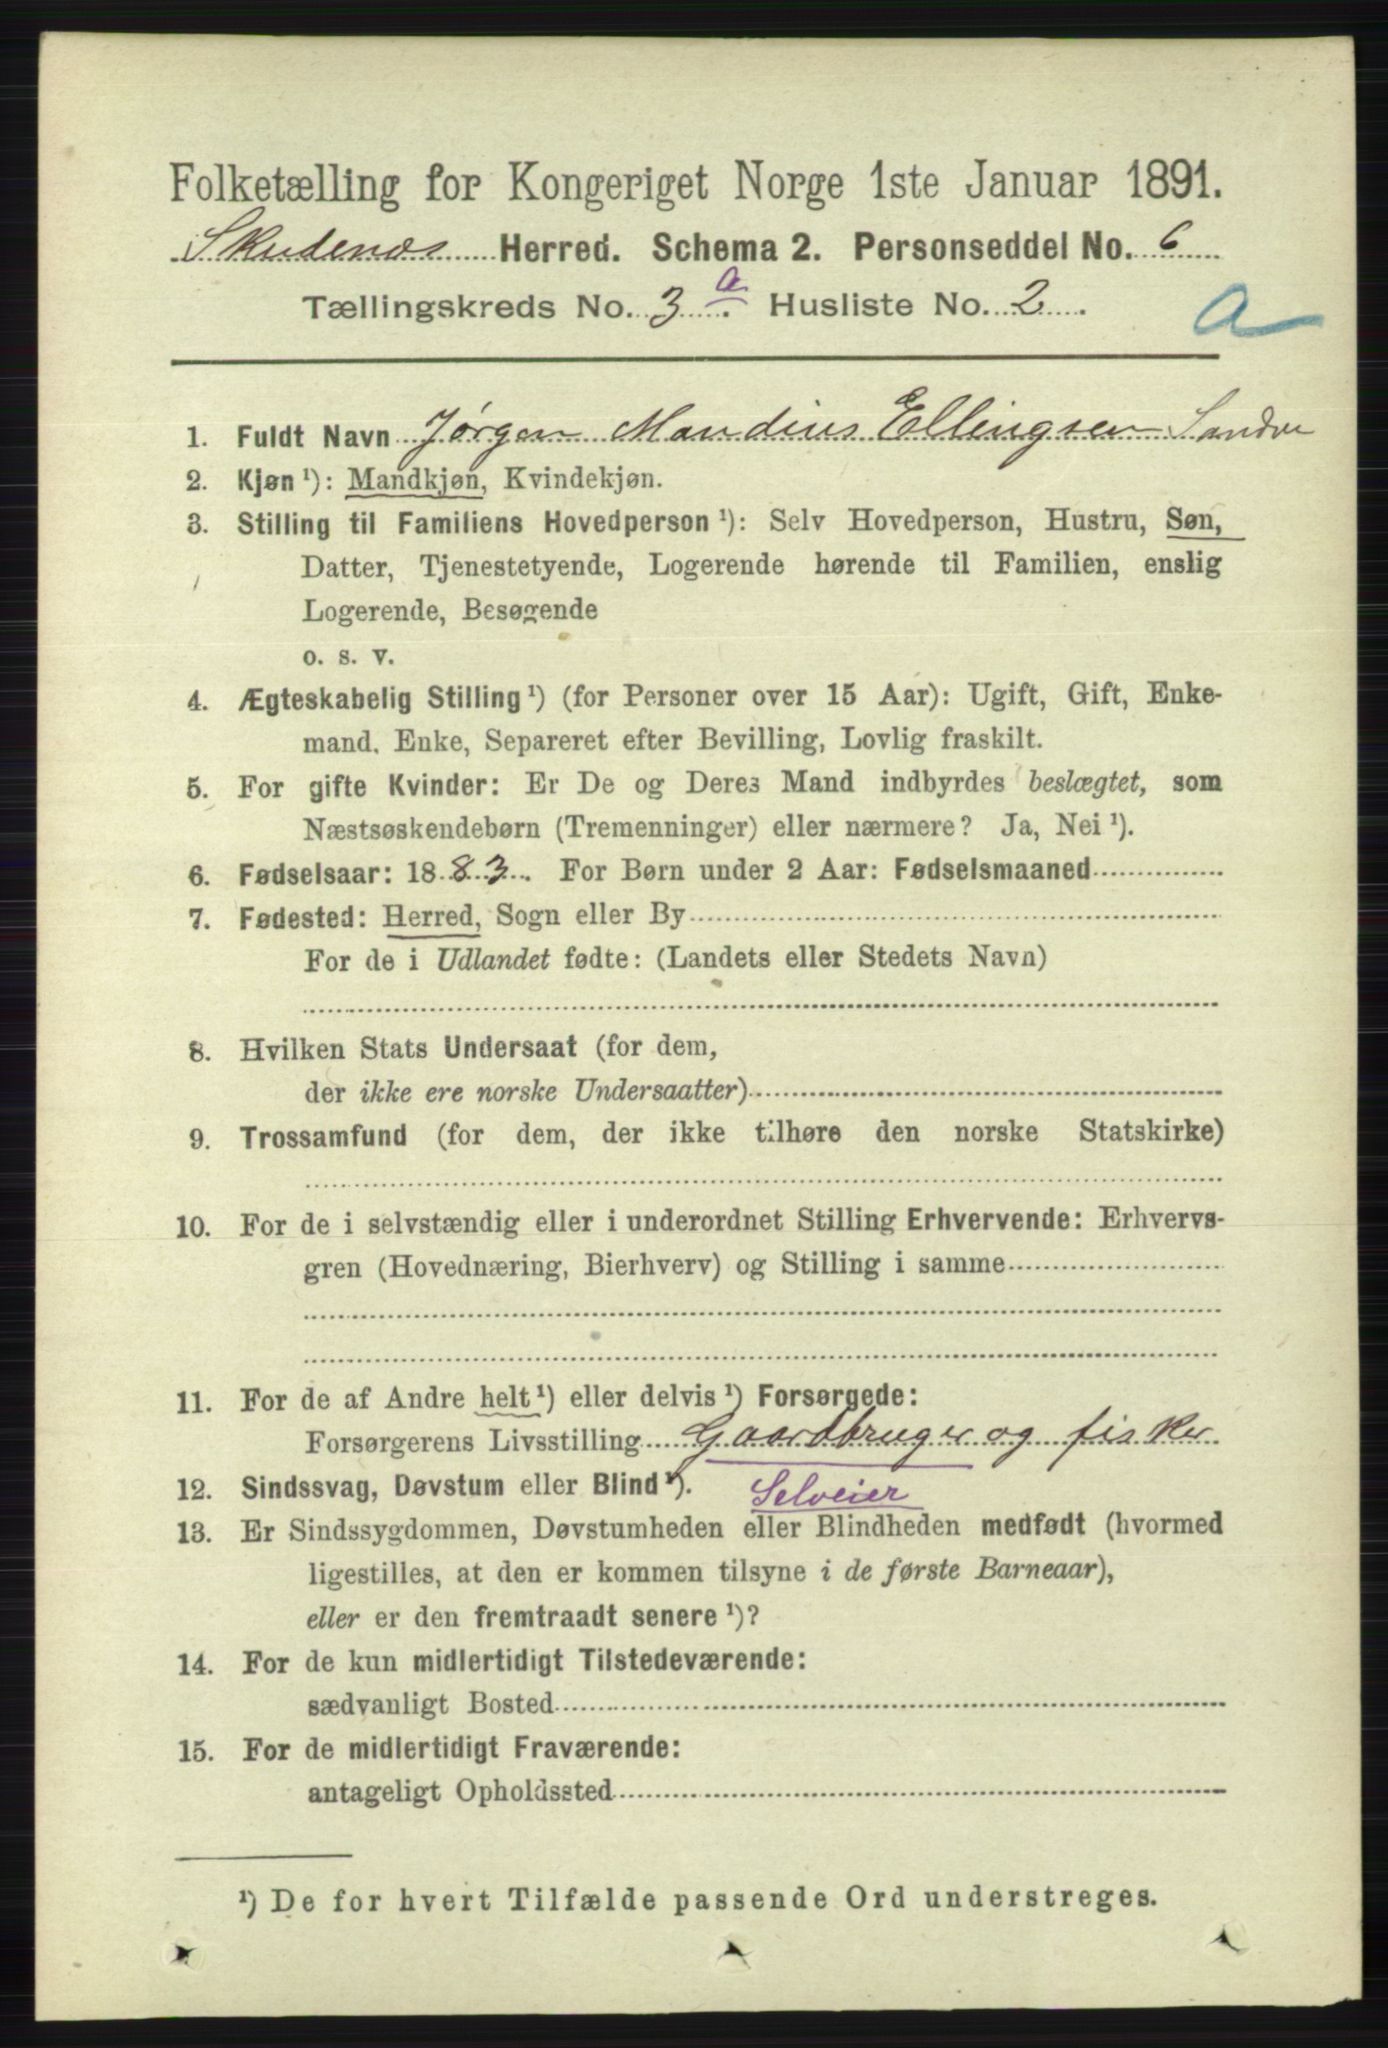 Folketælling for Kongeriget Norge 1ste Januar 1891.
Skudenæs Herred. Schema 2. Personseddel No. 6
Tællingskreds No. 3 a. Husliste No. 2.
a
1. Fuldt Navn Jørgen Mandius Ellingsen Sandve
2. Kjøn ¹): Mandkjøn, Kvindekjøn.
3. Stilling til Familiens Hovedperson ¹): Selv Hovedperson, Hustru, Søn,
Datter, Tjenestetyende, Logerende hørende til Familien, enslig
Logerende, Besøgende
o. s. v.
4. Ægteskabelig Stilling ¹) (for Personer over 15 Aar): Ugift, Gift, Enke-
mand, Enke, Separeret efter Bevilling, Lovlig fraskilt.
5. For gifte Kvinder: Er De og Deres Mand indbyrdes beslægtet, som
Næstsøskendebørn (Tremenninger) eller nærmere? Ja, Nei ¹).
6. Fødselsaar: 1883. For Børn under 2 Aar: Fødselsmaaned
7. Fødested: Herred, Sogn eller By
For de i Udlandet fødte: (Landets eller Stedets Navn)
8. Hvilken Stats Undersaat (for dem,
der ikke ere norske Undersaatter)
9. Trossamfund (for dem, der ikke tilhøre den norske Statskirke)
10. For de i selvstændig eller i underordnet Stilling Erhvervende: Erhvervs-
gren (Hovednæring, Bierhverv) og Stilling i samme
11. For de af Andre helt ¹) eller delvis ¹) Forsørgede:
Forsørgerens Livsstilling Gaardbruger og fisker
12. Sindssvag, Døvstum eller Blind ¹). Selveier
13. Er Sindssygdommen, Døvstumheden eller Blindheden medfødt (hvormed
ligestilles, at den er kommen tilsyne i de første Barneaar),
eller er den fremtraadt senere ¹)?
14. For de kun midlertidigt Tilstedeværende:
sædvanligt Bosted
15. For de midlertidigt Fraværende:
antageligt Opholdssted
¹) De for hvert Tilfælde passende Ord understreges.